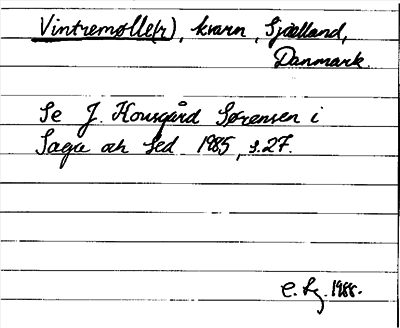 Vintremølle(r), kvarn, Sjælland,
Danmark.
Se J. Kousgård Sørensen i
Saga och Sed 1985, s. 27.
C. Lg. 1988.